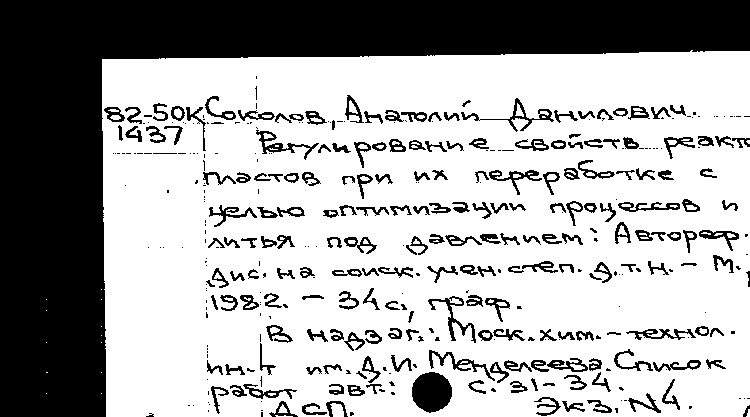 82-50К Соколов, Анатолий Данилович.
1437 Регулирование свойств реакто
пластов при их переработке с
целью оптимизации процессов и
литья под давлением: Автореф.
дис. на соиск. учен. степ. д.т.н. - М.,
1982. - 34 с, граф.
В надзаг.: Моск. хим. - технол.
ин-т им. Д.И. Менделеева. Список
работ авт.: с. 31-34.
ДСП. Экз. N4.